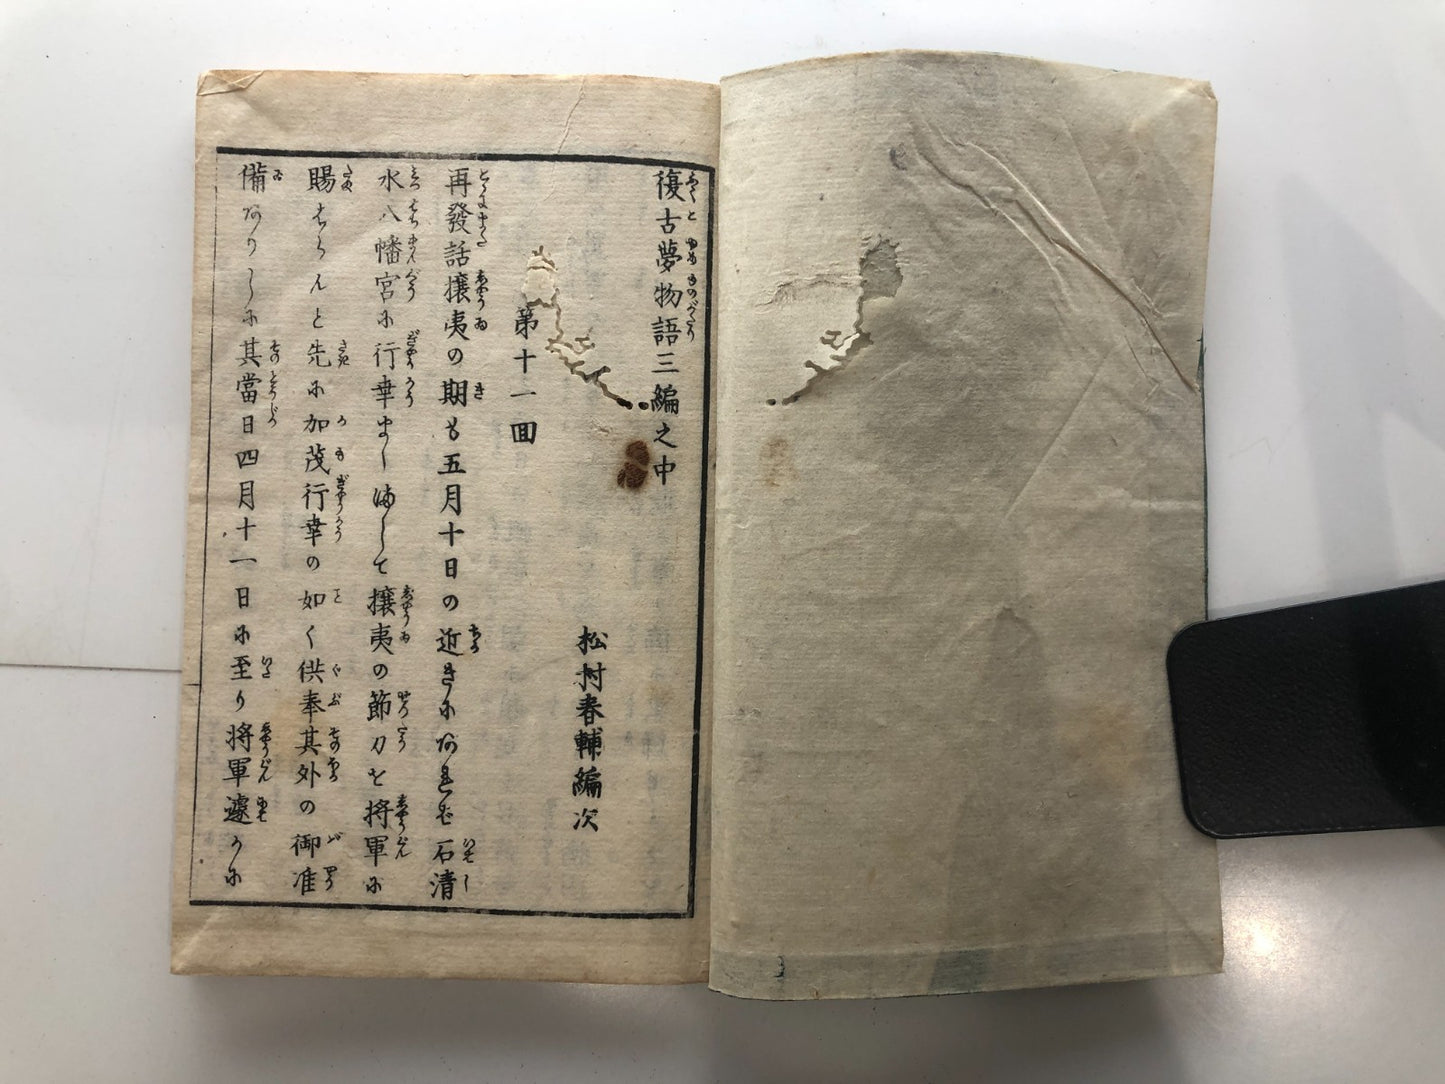 復古夢物語三編之中
松村春輔編次
第十一回
再發話攘夷の期も五月十日の近きにあれば石清
水八幡宮に行幸ましまして攘夷の節刀を將軍に
賜はらんと先に加茂行幸の如く供奉其外の御准
備ありしに其當日四月十一日に至り將軍遽かに